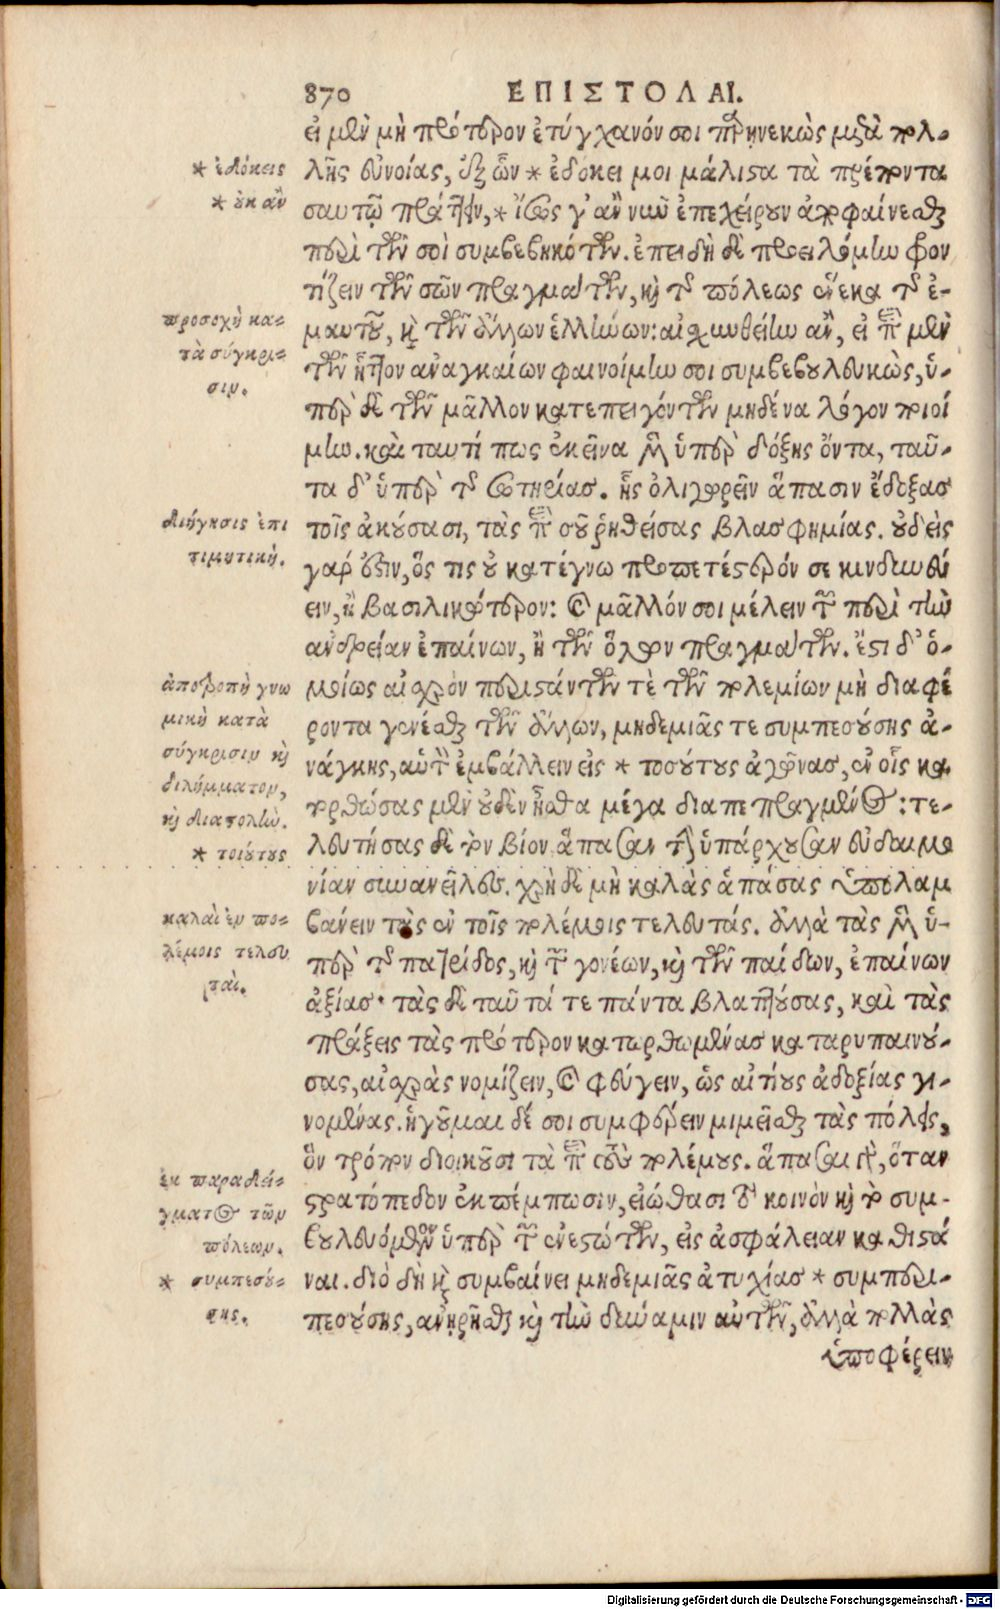 870 ΕΠΙΣΤΟΛΑΙ.
εἰ μὲν μὴ πρότερον ἐτύγχανόν σοι προσηνεκὼς μετὰ πολ-
λῆς εὐνοίας, ἐξ ὧν * ἐδόκει μοι μάλιστα τὰ πρέποντα
σαυτῷ πράττειν, * ἴσως γ' ἂν νῦν ἐπεχείρουν ἀποφαίνεσθαι
περὶ τῶν σοὶ συμβεβηκότων. ἐπειδὴ δὲ προειλόμην φρον
τίζειν τῶν σῶν πραγμάτων, καὶ τῆς πόλεως ἕνεκα τῆς ἐ-
μαυτοῦ, καὶ τῶν ἄλλων ἑλλήνων: αἰσχυνθείην ἂν, εἰ περὶ μὲν
τῶν ἧττον ἀναγκαίων φαινοίμην σοι συμβεβουλευκὼς, ὑ-
πὲρ δὲ τῶν μᾶλλον κατεπειγόντων μηδένα λόγον ποιοί
μην. καὶ ταυτί πως ἐκεῖνα μὲν ὑπὲρ δόξης ὄντα, ταῦ-
τα δ' ὑπὲρ τῆς σωτηρίας. ἧς ὀλιγωρεῖν ἅπασιν ἔδοξας
τοῖς ἀκούσασι, τὰς περὶ σοῦ ῥηθείσας βλασφημίας. οὐδεὶς
γάρ ἐστιν, ὅς τις οὐ κατέγνω προπετέστερόν σε κινδυνεύ
ειν, ἢ βασιλικώτερον: καὶ μᾶλλόν σοι μέλειν τῶν περὶ τὴν
ἀνδρείαν ἐπαίνων, ἢ τῶν ὅλων πραγμάτων. ἔστι δ' ὁ-
μοίως αἰσχρὸν περιστάντων τὲ τῶν πολεμίων μὴ διαφέ
ροντα γενέσθαι τῶν ἄλλων, μηδεμιᾶς τε συμπεσούσης ἀ-
νάγκης, αὑτὸν ἐμβάλλειν εἰς * τοσούτους ἀγῶνας, ἐν οἷς κα
τορθώσας μὲν οὐδὲν ἦσθα μέγα διαπεπραγμένος: τε-
λευτήσας δὲ τὸν βίον ἅπασαν τὴν ὑπάρχουσαν εὐδαιμο
νίαν συνανεῖλες. χρὴ δὲ μὴ καλὰς ἁπάσας ὑπολαμ
βάνειν τὰς ἐν τοῖς πολέμοις τελευτάς. ἀλλὰ τὰς μὲν ὑ-
πὲρ τῆς πατρίδος, καὶ τῶν γονέων, καὶ τῶν παίδων, ἐπαίνων
ἀξίας· τὰς δὲ ταῦτά τε πάντα βλαπτούσας, καὶ τὰς
πράξεις τὰς πρότερον κατωρθωμένας καταρυπαινού-
σας, αἰσχρὰς νομίζειν, καὶ φεύγειν, ὡς αἰτίους ἀδοξίας γι-
νομένας. ἡγοῦμαι δέ σοι συμφέρειν μιμεῖσθαι τὰς πόλεις,
ὃν τρόπον διοικοῦσι τὰ περὶ τοὺς πολέμους. ἅπασαι γὰρ, ὅταν
στρατόπεδον ἐκπέμπωσιν, εἰώθασι τὸ κοινὸν καὶ τὸ συμ-
βουλευόμενον ὑπὲρ τῶν ἐνεστώτων, εἰς ἀσφάλειαν καθιστά
ναι. διὸ δὴ καὶ συμβαίνει μηδεμιᾶς ἀτυχίας * συμπερι-
πεσούσης, ἀνῃρῆσθαι καὶ τὴν δύναμιν αὐτῶν, ἀλλὰ πολλὰς
ὑποφέρειν
* ἐδόκεις
* οὐκ ἂν
προσοχὴ κα-
τὰ σύγκρι-
σιν.
διήγησις ἐπι
τιμητική.
ἀποτροπὴ γνω
μικὴ κατὰ
σύγκρισιν καὶ
διλήμματον,
καὶ διαστολὴν.
* τοιούτους
καλαὶ ἐν πο-
λέμοις τελευ
ταὶ.
ἐκ παραδεί-
γματος τῶν
πόλεων.
* συμπεσού-
σης.
Digitalisierung gefördert durch die Deutsche Forschungsgemeinschaft - DFG